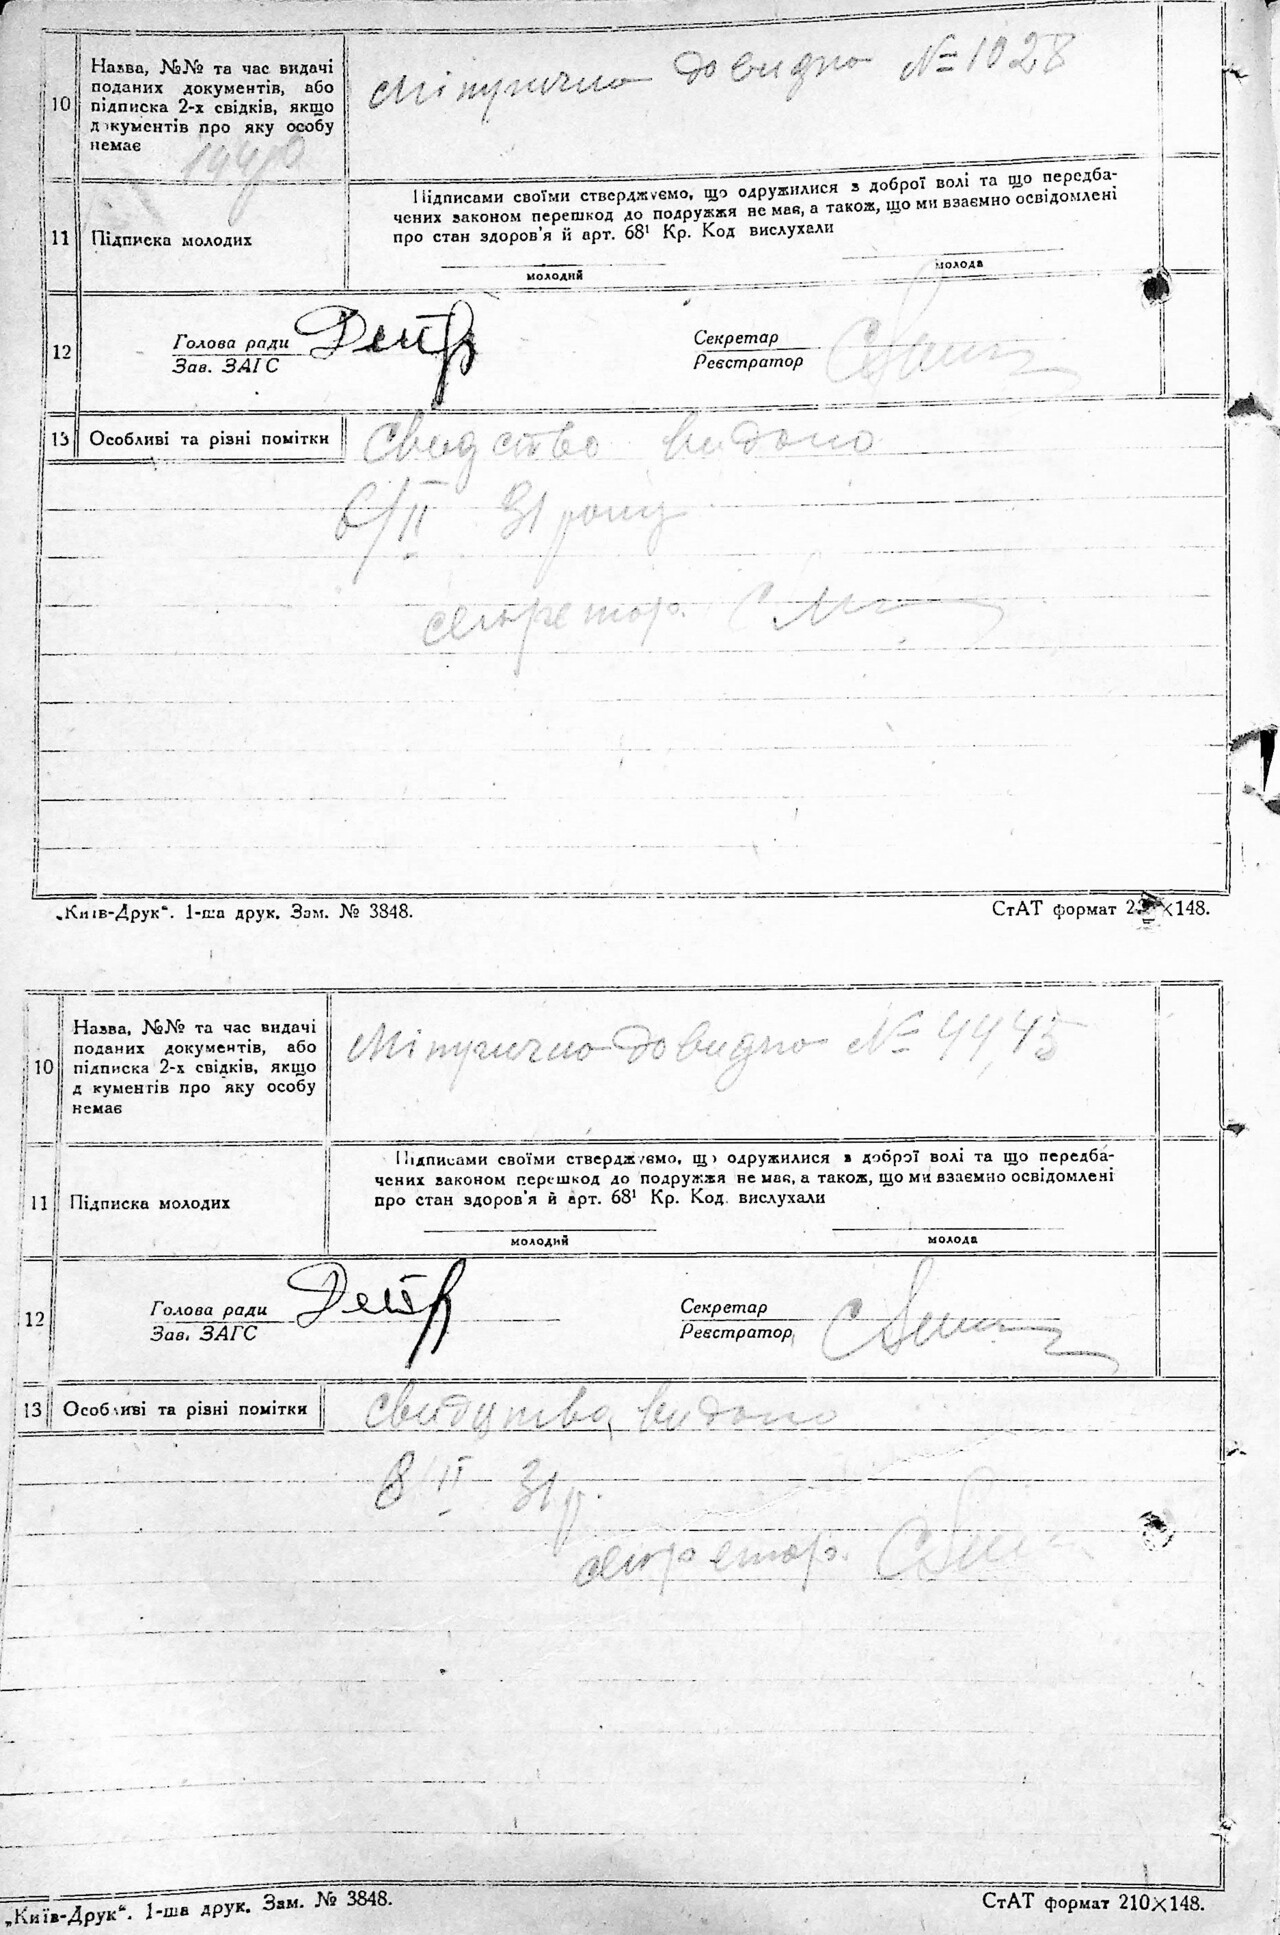 10
Назва, №№ та час видачі
поданих документів, або
підписка 2-х свідків, якщо
документів про яку особу
немає
Мітрична довидка № 1028
11
Підписка молодих
Підписами своїми стверджуємо, що одружилися з доброї волі та що передба-
чених законом перешкод до подружжя не має, а також, що ми взаємно освідомлені
про стан здоров'я й арт. 68¹ Кр. Код вислухали
молодий
молода
12
Голова ради
Зав. ЗАГС
Секретар
Реєстратор
13
Особливі та різні помітки
свидство видано
6/II 31 року
секретар
„Київ-Друк“. 1-ша друк. Зам. № 3848.
СтАТ формат 210×148.
10
Назва, №№ та час видачі
поданих документів, або
підписка 2-х свідків, якщо
д кументів про яку особу
немає
Мітрична довидка № 4445
11
Підписка молодих
Підписами своїми стверджуємо, що одружилися з доброї волі та що передба-
чених законом перешкод до подружжя не має, а також, що ми взаємно освідомлені
про стан здоров'я й арт. 68¹ Кр. Код. вислухали
молодий
молода
12
Голова ради
Зав. ЗАГС
Секретар
Реєстратор
13
Особливі та різні помітки
видано
8/II 31 р.
секретар.
„Київ-Друк“. 1-ша друк. Зам. № 3848.
СтАТ формат 210×148.